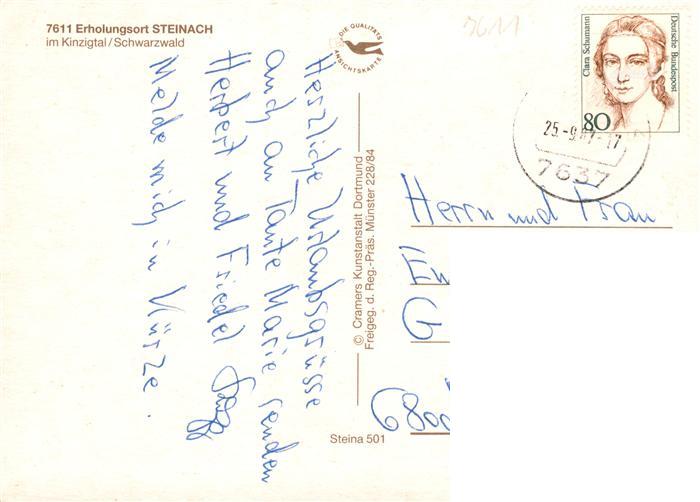 7611 Erholungsort STEINACH
im Kinzigtal/Schwarzwald
DIE QUALITÄTS
ANSICHTSKARTE
7611
Clara Schumann
Deutsche Bundespost
80
25.-9.87-17
7637
Herzliche Urlaubsgrüsse
auch an Tante Marie senden
Herbert und Friedel
Melde mich in Kürze.
© Cramers Kunstanstalt Dortmund
Freigeg. d. Reg.-Präs. Münster 228/84
Steina 501
Herrn und Frau
G